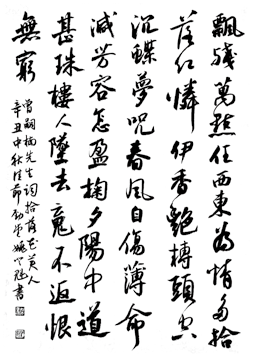 飄殘萬點任西東為情多拾
落紅憐伊香艷轉頭空
沉蝶夢咒春風自傷薄命
減芳容怎盈掬夕陽中道
甚珠樓人墜去魂不返恨
無窮
先生詞拾落花美人
辛丑中秋佳節書